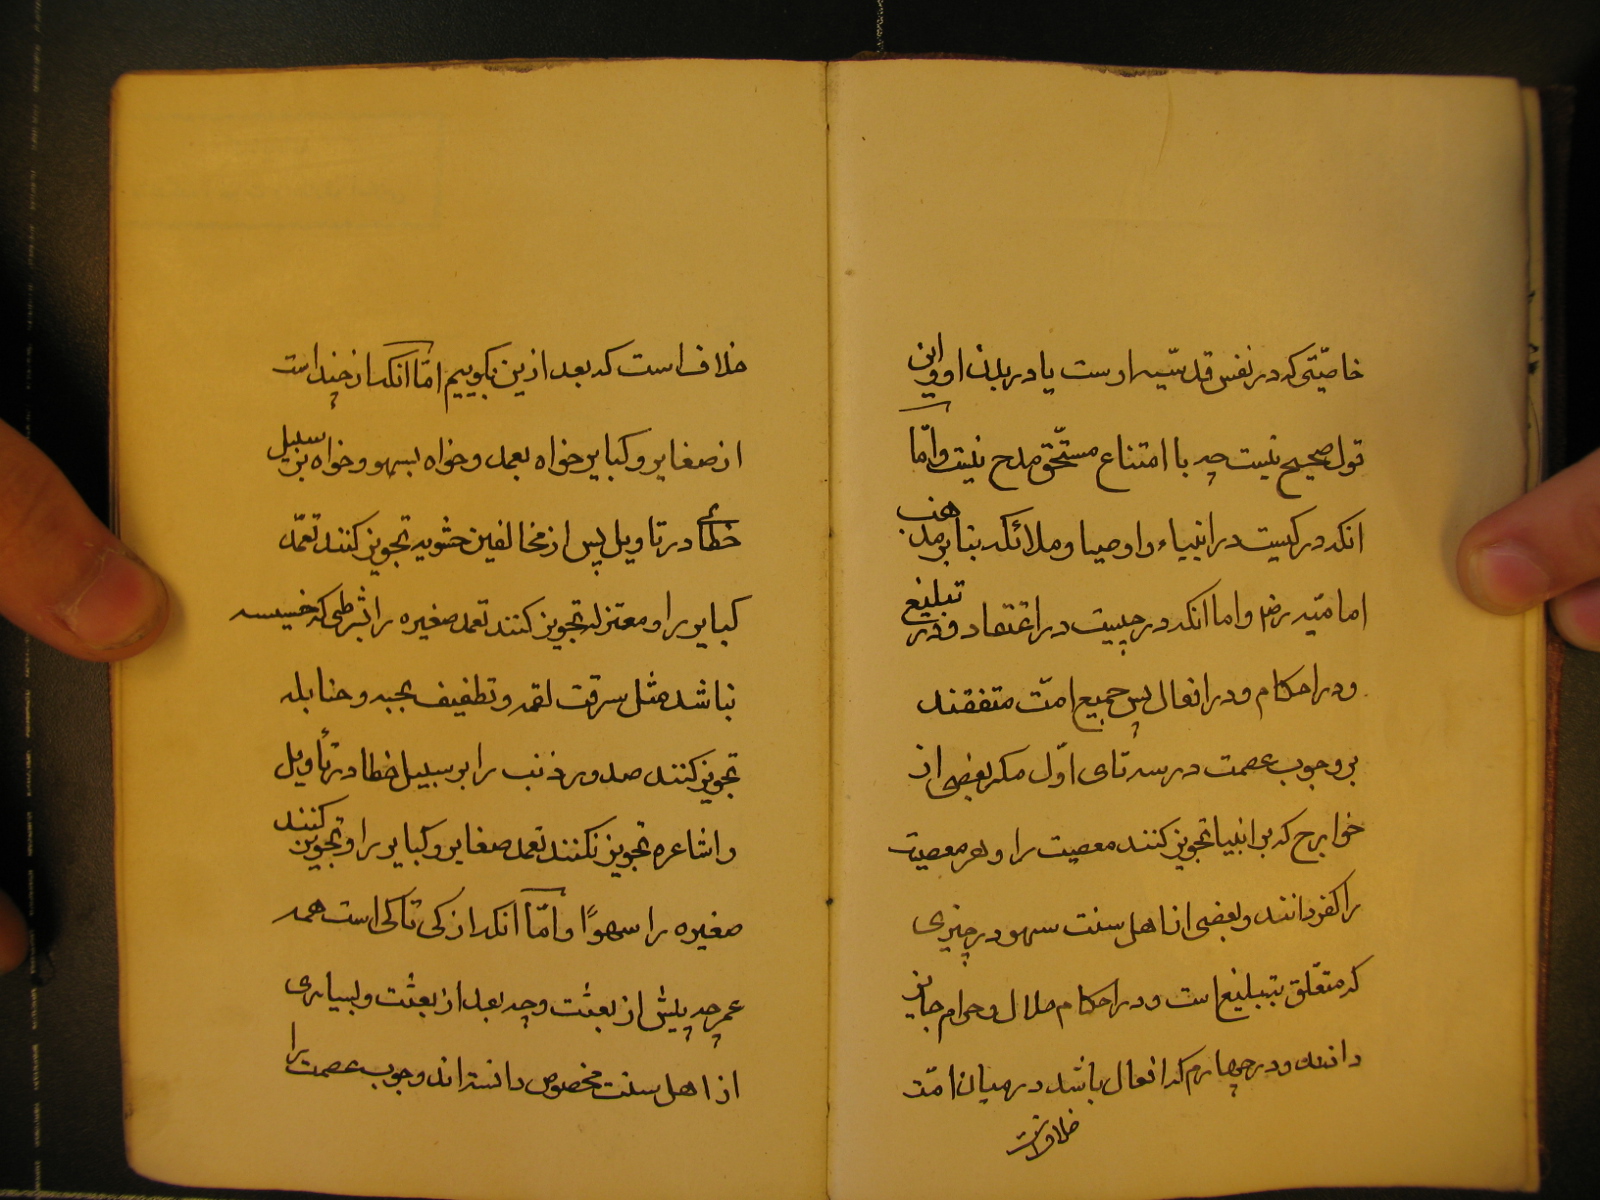 خاصیّتی که در نفس قدسّیه اوست یا در بدن او و این
قول صحیح نیست چه با امتناع مستحّق مدح نیست و امّا
انکه در کیست در انبیاء و اوصیا و ملائکه بنا بر مذهب
امامیّه رض و اما انکه در چیست در اعتقاد و در تبلیغ
و در احکام و در افعال پس جمیع امّت متفقند
بر وجوب عصمت در سه تای اوّل مکر بعضی از
خوارج که بر انبیا تجویز کنند معصیت را و هر معصیت
را کفر دانند و بعضی از اهل سنت سهو در چیزی
که متعلّق بتبلیغ است و در احکام حلال و حرام جایز
دانند و در چهارم که افعال باشد در میان امّت
خلافست
خلاف است که بعد از ین بکوییم امّا انکه از چند است
از صغایر و کبایر خواه بعمد و خواه بسهو و خواه بر سبیل
خطائی در تاویل پس از مخالفین حشویه تجویز کنند تعمّد
کبایر را و معتزله تجویز کنند تعمد صغیره را بشرطی که خسیسه
نباشد مثل سرقت لقمه و تطفیف بحبه و حنابله
تجویز کنند صدور ذنب را بر سبیل خطا در تأویل
و اشاعره تجویز نکنند تعمد صغایر و کبایر را و تجویز کنند
صغیره را سهوًا و امّا انکه از کی تا کی است همه
عمر چه پیش از بعثت و چه بعد از بعثت و بسیاری
از اهل سنت مخصوص دانسته اند وجوب عصمت را